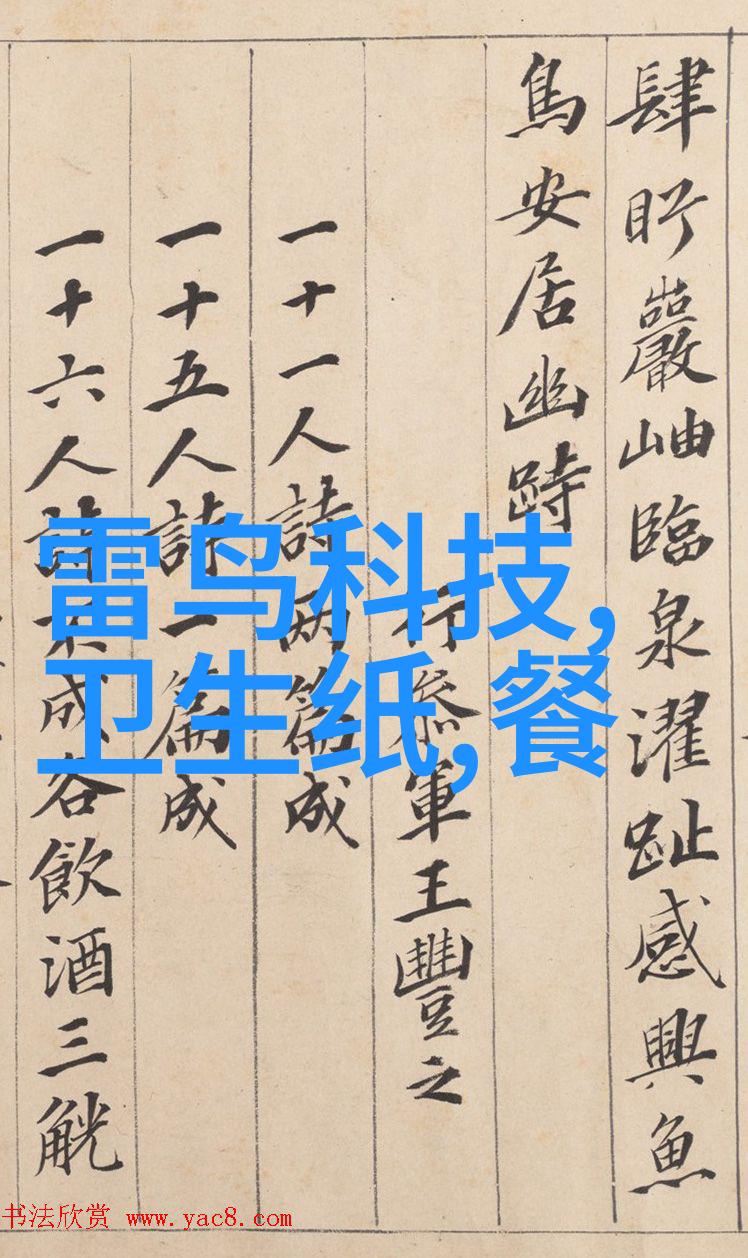 肆盻巖岫臨泉濯趾感興魚
鳥安居幽跱
行參軍王豐之
一十一人詩兩篇成
一十五人詩一篇成
一十六人詩不成各飲酒三觥
雷鸟科技,
卫生纸,餐
书法欣赏 www.yac8.com